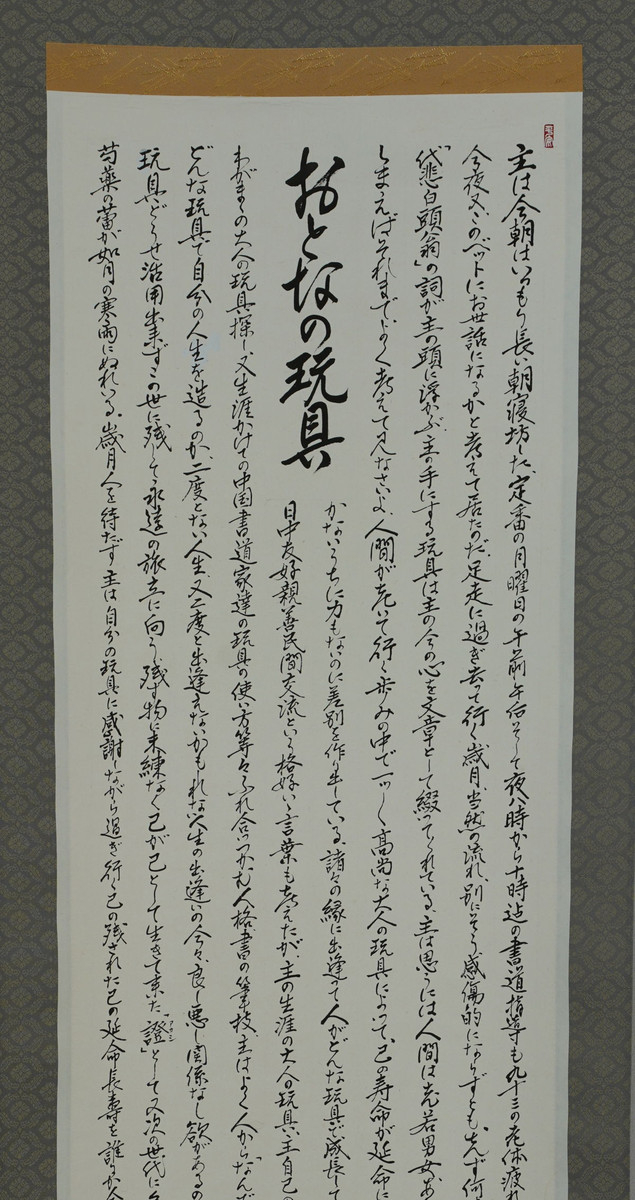 主は今朝はいつもより長い朝寝坊した、定番の月曜日の午前午后そして夜八時から十時迄の書道指導も九十三の老体疲
今夜又このベットにお世話になるかと考えて居たのだ、足走に過ぎ去って行く歳月、当然の流れ、別にそう感傷的にならずとも、先ず何
「代悲白頭翁」の詞が主の頭に浮かぶ、主の手にする玩具は主の今の心を文章として綴ってくれている、主は思うには人間は老若男女
しまえばそれまで、よく考えて見なさいよ、人間が老いて行く歩みの中で一ツ一ツ高尚な大人の玩具によって、己の寿命が延命に
おとなの玩具
かないうちに力もないのに差別を作り出している、諸々の縁に出逢って人がどんな玩具で成長して
日中友好親善民間交流という格好いい言葉も考えたが、主の生涯の大人の玩具、主自己の
わがままの大人の玩具探し、又生涯かけての中国書道家達の玩具の使い方等々ふれ合いつかむ人格、書の筆技、主はよく人からなんだ
どんな玩具で自分の人生を造るのか、二度とない人生、又二度と出逢えないかもしれない人生の出逢いの今々、良し悪し関係なし欲があるの
玩具、どうせ活用出来ずこの世に残して永遠の旅立に向う、残す物に未練なく己が己として生きて来た「證」として又次の世代に
芍薬の蕾が如月の寒雨にぬれいる、歳月人を待たず主は自分の玩具に感謝しながら過ぎ行く己の残された己の延命長寿を誰か